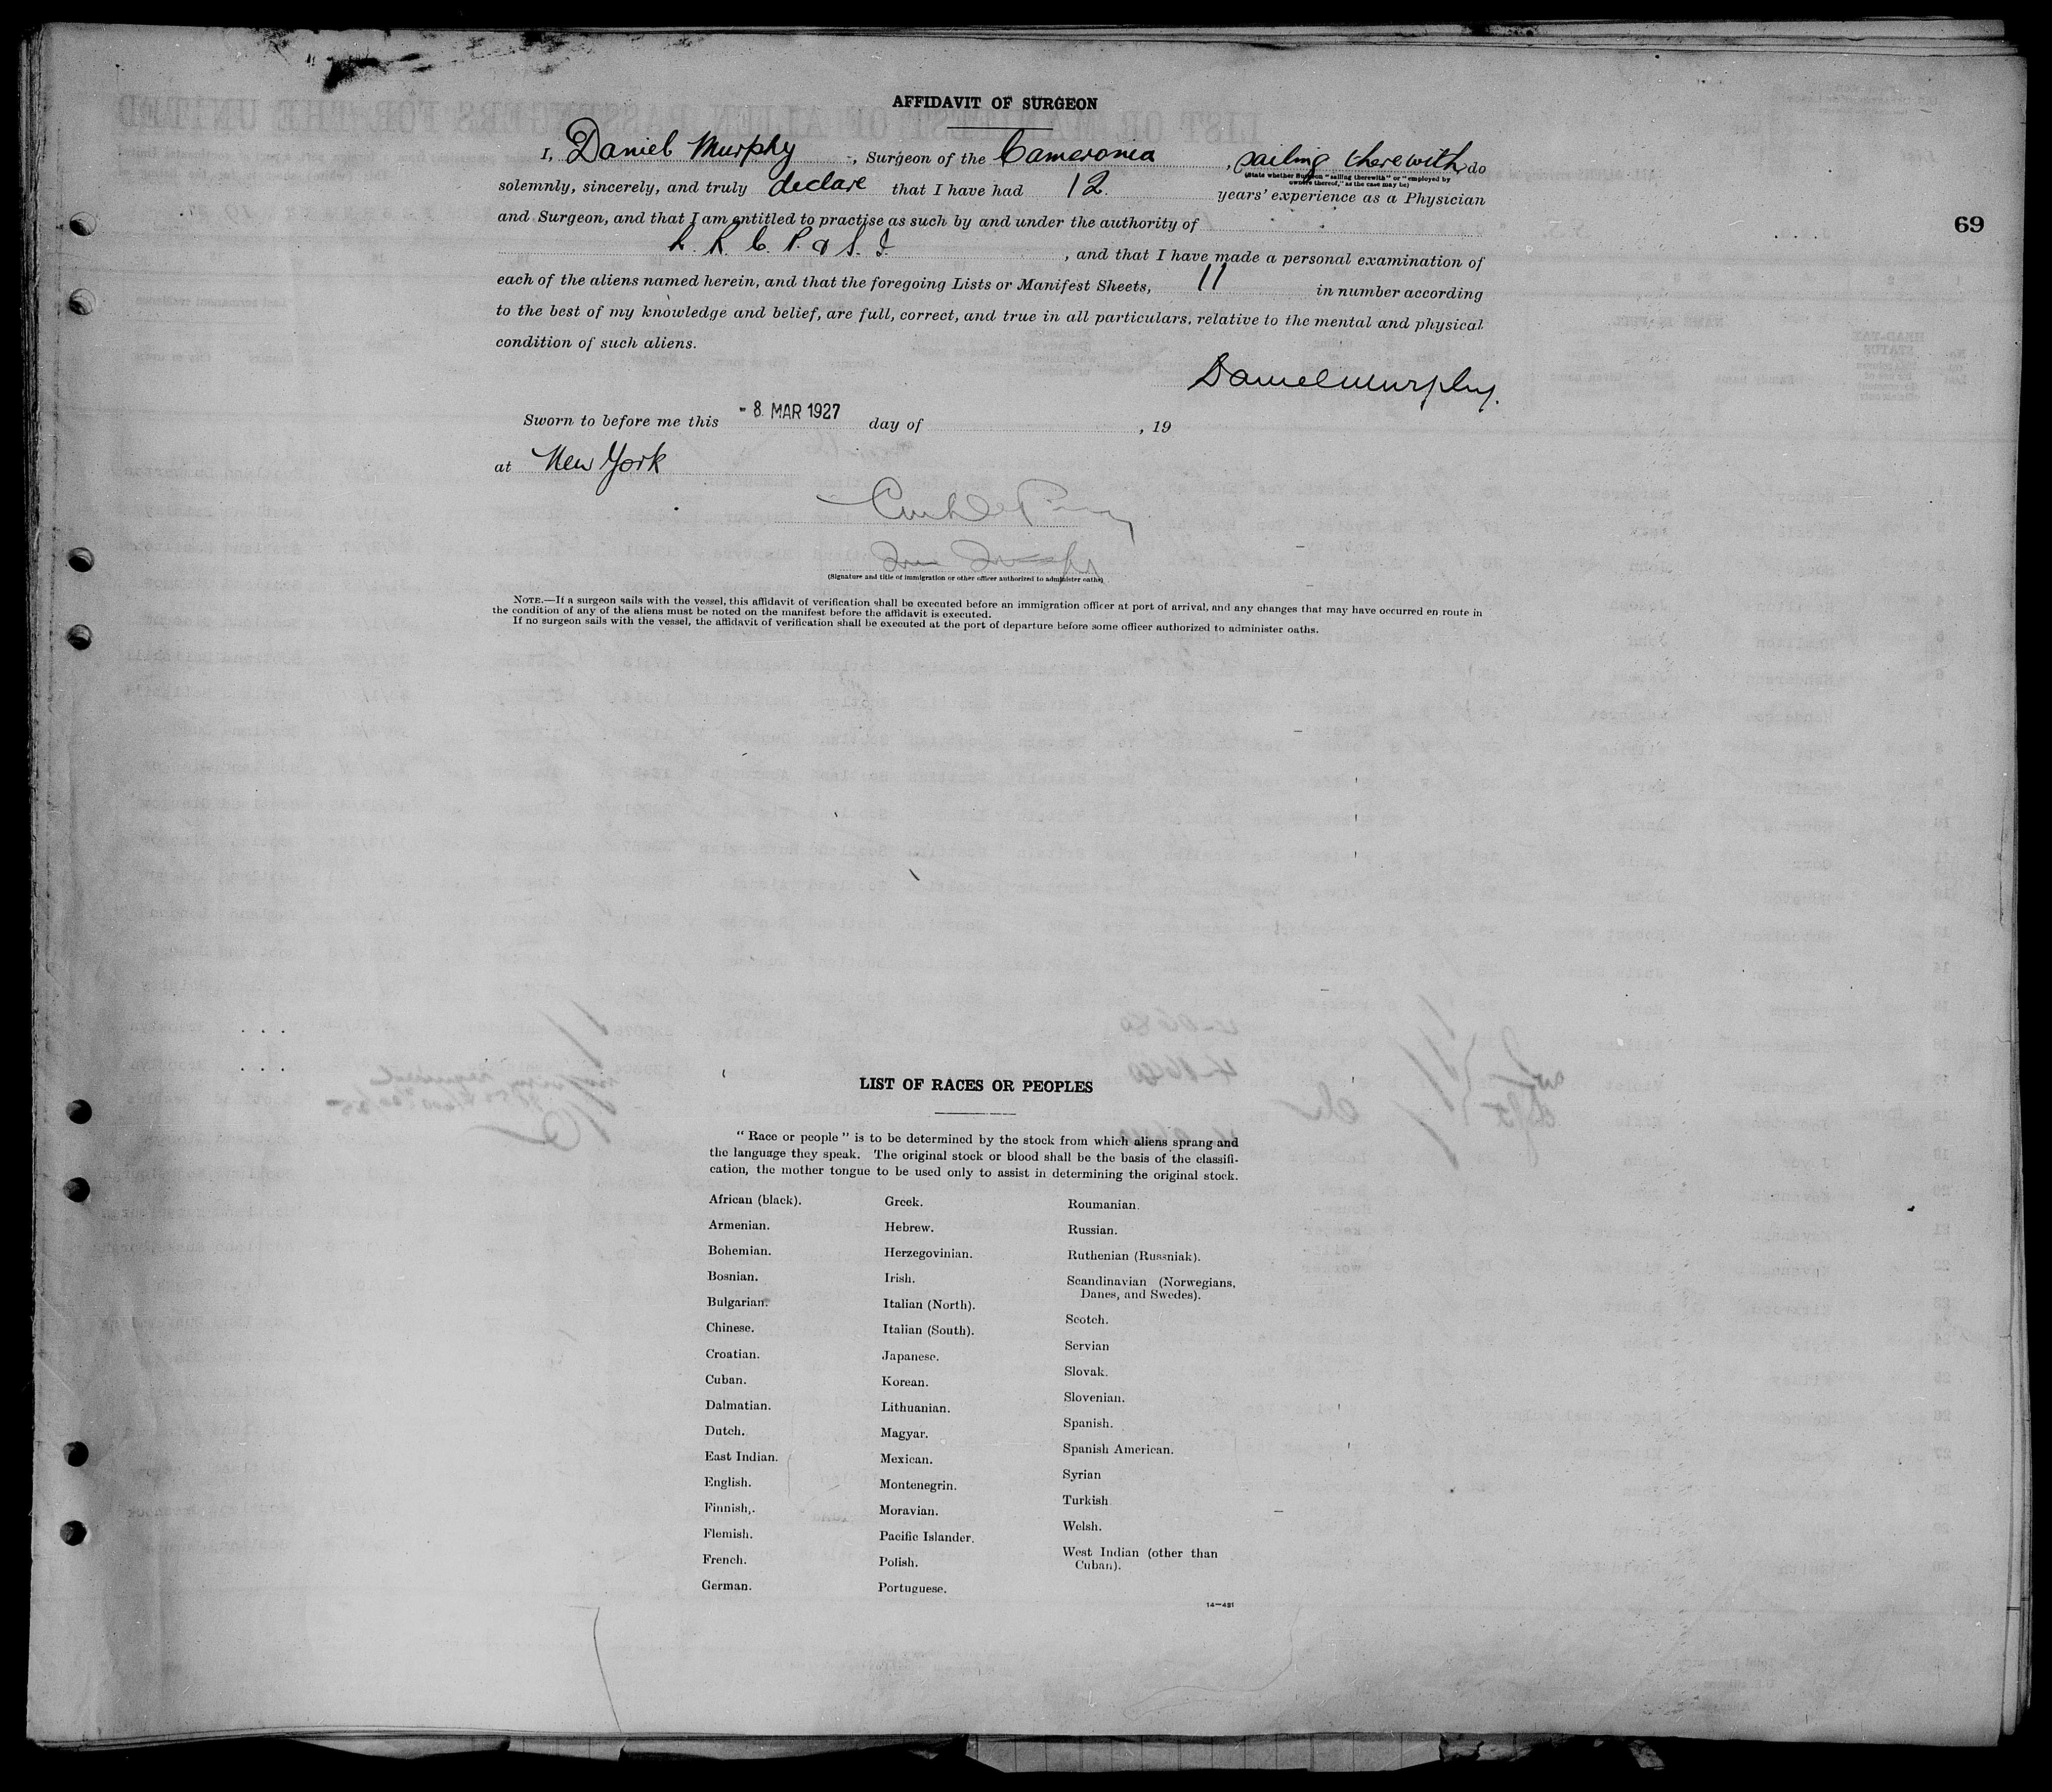 AFFIDAVIT OF SURGEON
I, Daniel Murphy, Surgeon of the Cameronia, sailing therewith, do
(State whether Surgeon "sailing therewith" or "employed by
owners thereof," as the case may be)
solemnly, sincerely, and truly declare that I have had 12 years' experience as a Physician
and Surgeon, and that I am entitled to practise as such by and under the authority of
L. R. C. P. & S. I., and that I have made a personal examination of
each of the aliens named herein, and that the foregoing Lists or Manifest Sheets, 11 in number according
to the best of my knowledge and belief, are full, correct, and true in all particulars, relative to the mental and physical
condition of such aliens.
Daniel Murphy.
Sworn to before me this - 8 MAR 1927 day of , 19
at New York
(Signature and title of immigration or other officer authorized to administer oaths)
NOTE.—If a surgeon sails with the vessel, this affidavit of verification shall be executed before an immigration officer at port of arrival, and any changes that may have occurred en route in
the condition of any of the aliens must be noted on the manifest before the affidavit is executed.
If no surgeon sails with the vessel, the affidavit of verification shall be executed at the port of departure before some officer authorized to administer oaths.
69
LIST OF RACES OR PEOPLES
"Race or people" is to be determined by the stock from which aliens sprang and
the language they speak. The original stock or blood shall be the basis of the classifi-
cation, the mother tongue to be used only to assist in determining the original stock.
African (black).
Armenian.
Bohemian.
Bosnian.
Bulgarian.
Chinese.
Croatian.
Cuban.
Dalmatian.
Dutch.
East Indian.
English.
Finnish.
Flemish.
French.
German.
Greek.
Hebrew.
Herzegovinian.
Irish.
Italian (North).
Italian (South).
Japanese.
Korean.
Lithuanian.
Magyar.
Mexican.
Montenegrin.
Moravian.
Pacific Islander.
Polish.
Portuguese.
Roumanian.
Russian.
Ruthenian (Russniak).
Scandinavian (Norwegians,
Danes, and Swedes).
Scotch.
Servian
Slovak.
Slovenian.
Spanish.
Spanish American.
Syrian
Turkish
Welsh.
West Indian (other than
Cuban).
14—431